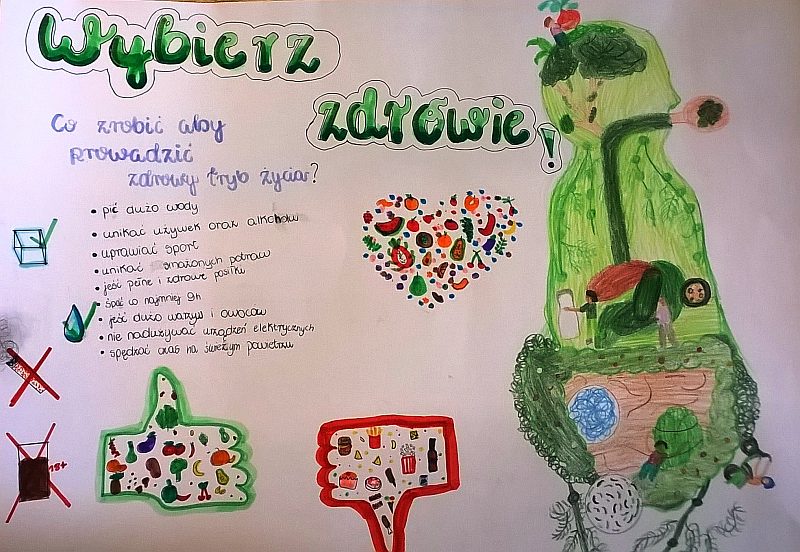 Wybierz
zdrowie!
Co zrobić aby
prowadzić
zdrowy tryb życia?
• pić dużo wody
• unikać używek oraz alkoholu
• uprawiać sport
• unikać smażonych potraw
• jeść pełne i zdrowe posiłki
• spać co najmniej 9h
• jeść dużo warzyw i owoców
• nie nadużywać urządzeń elektrycznych
• spędzać czas na świeżym powietrzu
18+